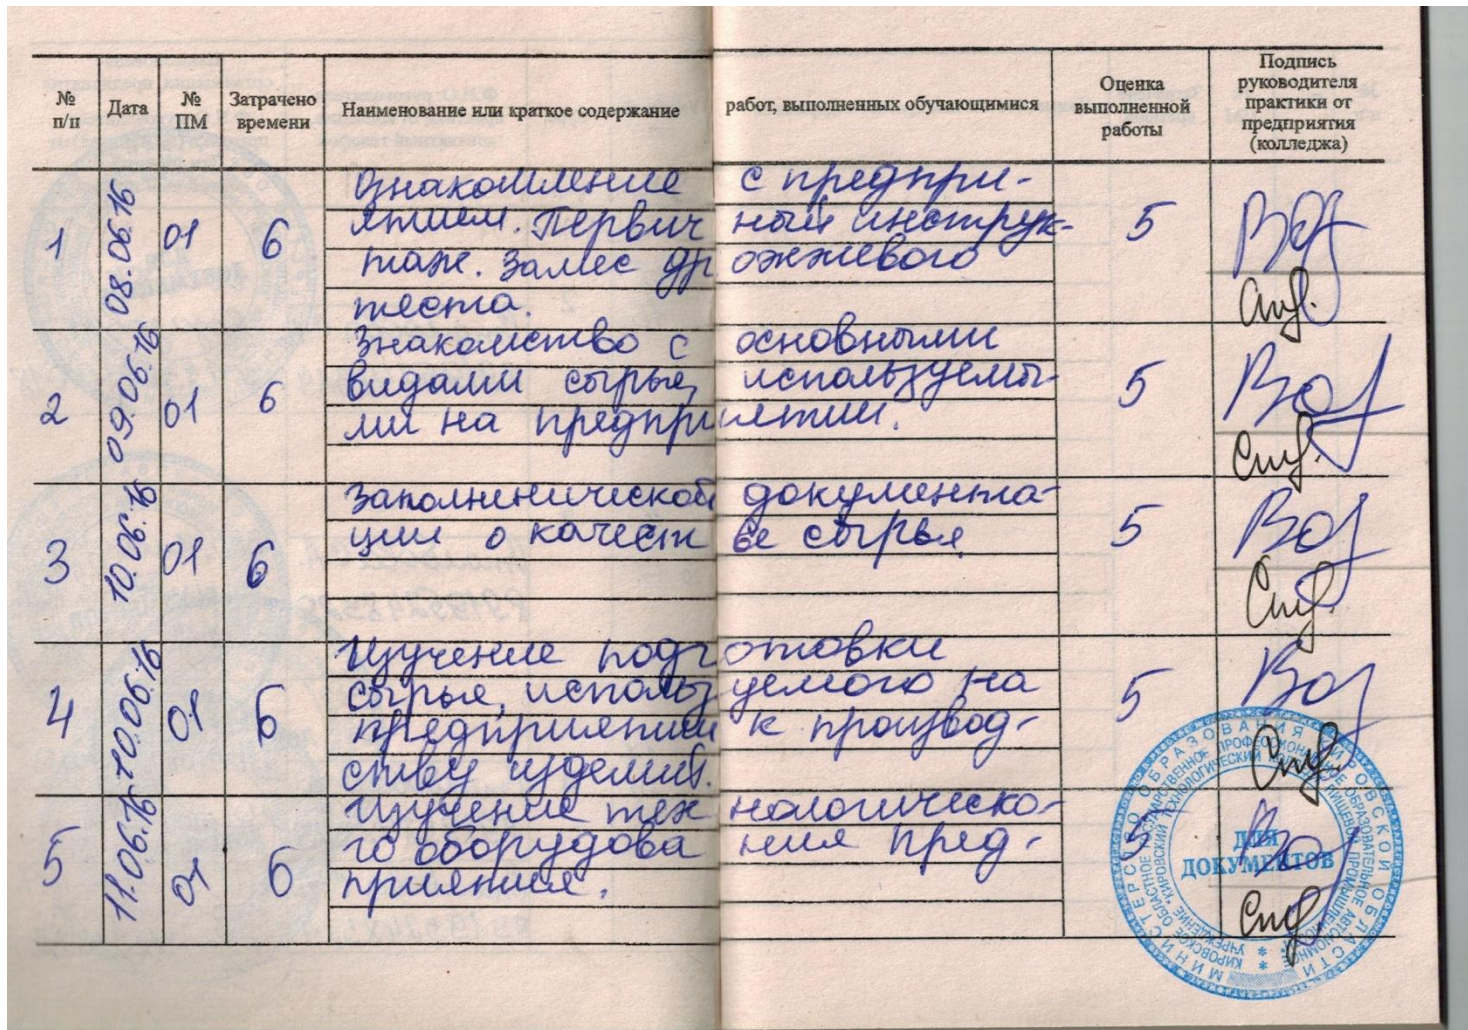 № п/п
Дата
№ ПМ
Затрачено времени
Наименование или краткое содержание работ, выполненных обучающимися
Оценка выполненной работы
Подпись руководителя практики от предприятия (колледжа)
1 08.06.16 01 6 Ознакомление с предпри-
ятием. Первичный инструк-
таж. Замес дрожжевого
теста. 5
2 09.06.16 01 6 Знакомство с основными
видами сырья, используемы-
ми на предприятии. 5
3 10.06.16 01 6 документа-
ции о качестве сырья 5
4 10.06.16 01 6 Изучение подготовки
сырья, используемого на
предприятии к производ-
ству изделий. 5
5 11.06.16 01 6 Изучение технологическо-
го оборудования пред-
приятия. 5
МИНИСТЕРСТВО ОБРАЗОВАНИЯ КИРОВСКОЙ ОБЛАСТИ
КИРОВСКОЕ ОБЛАСТНОЕ ГОСУДАРСТВЕННОЕ ПРОФЕССИОНАЛЬНОЕ ОБРАЗОВАТЕЛЬНОЕ АВТОНОМНОЕ
УЧРЕЖДЕНИЕ "КИРОВСКИЙ ТЕХНОЛОГИЧЕСКИЙ ПИЩЕВОЙ ПРОМЫШЛЕННОСТИ"
ДЛЯ
ДОКУМЕНТОВ